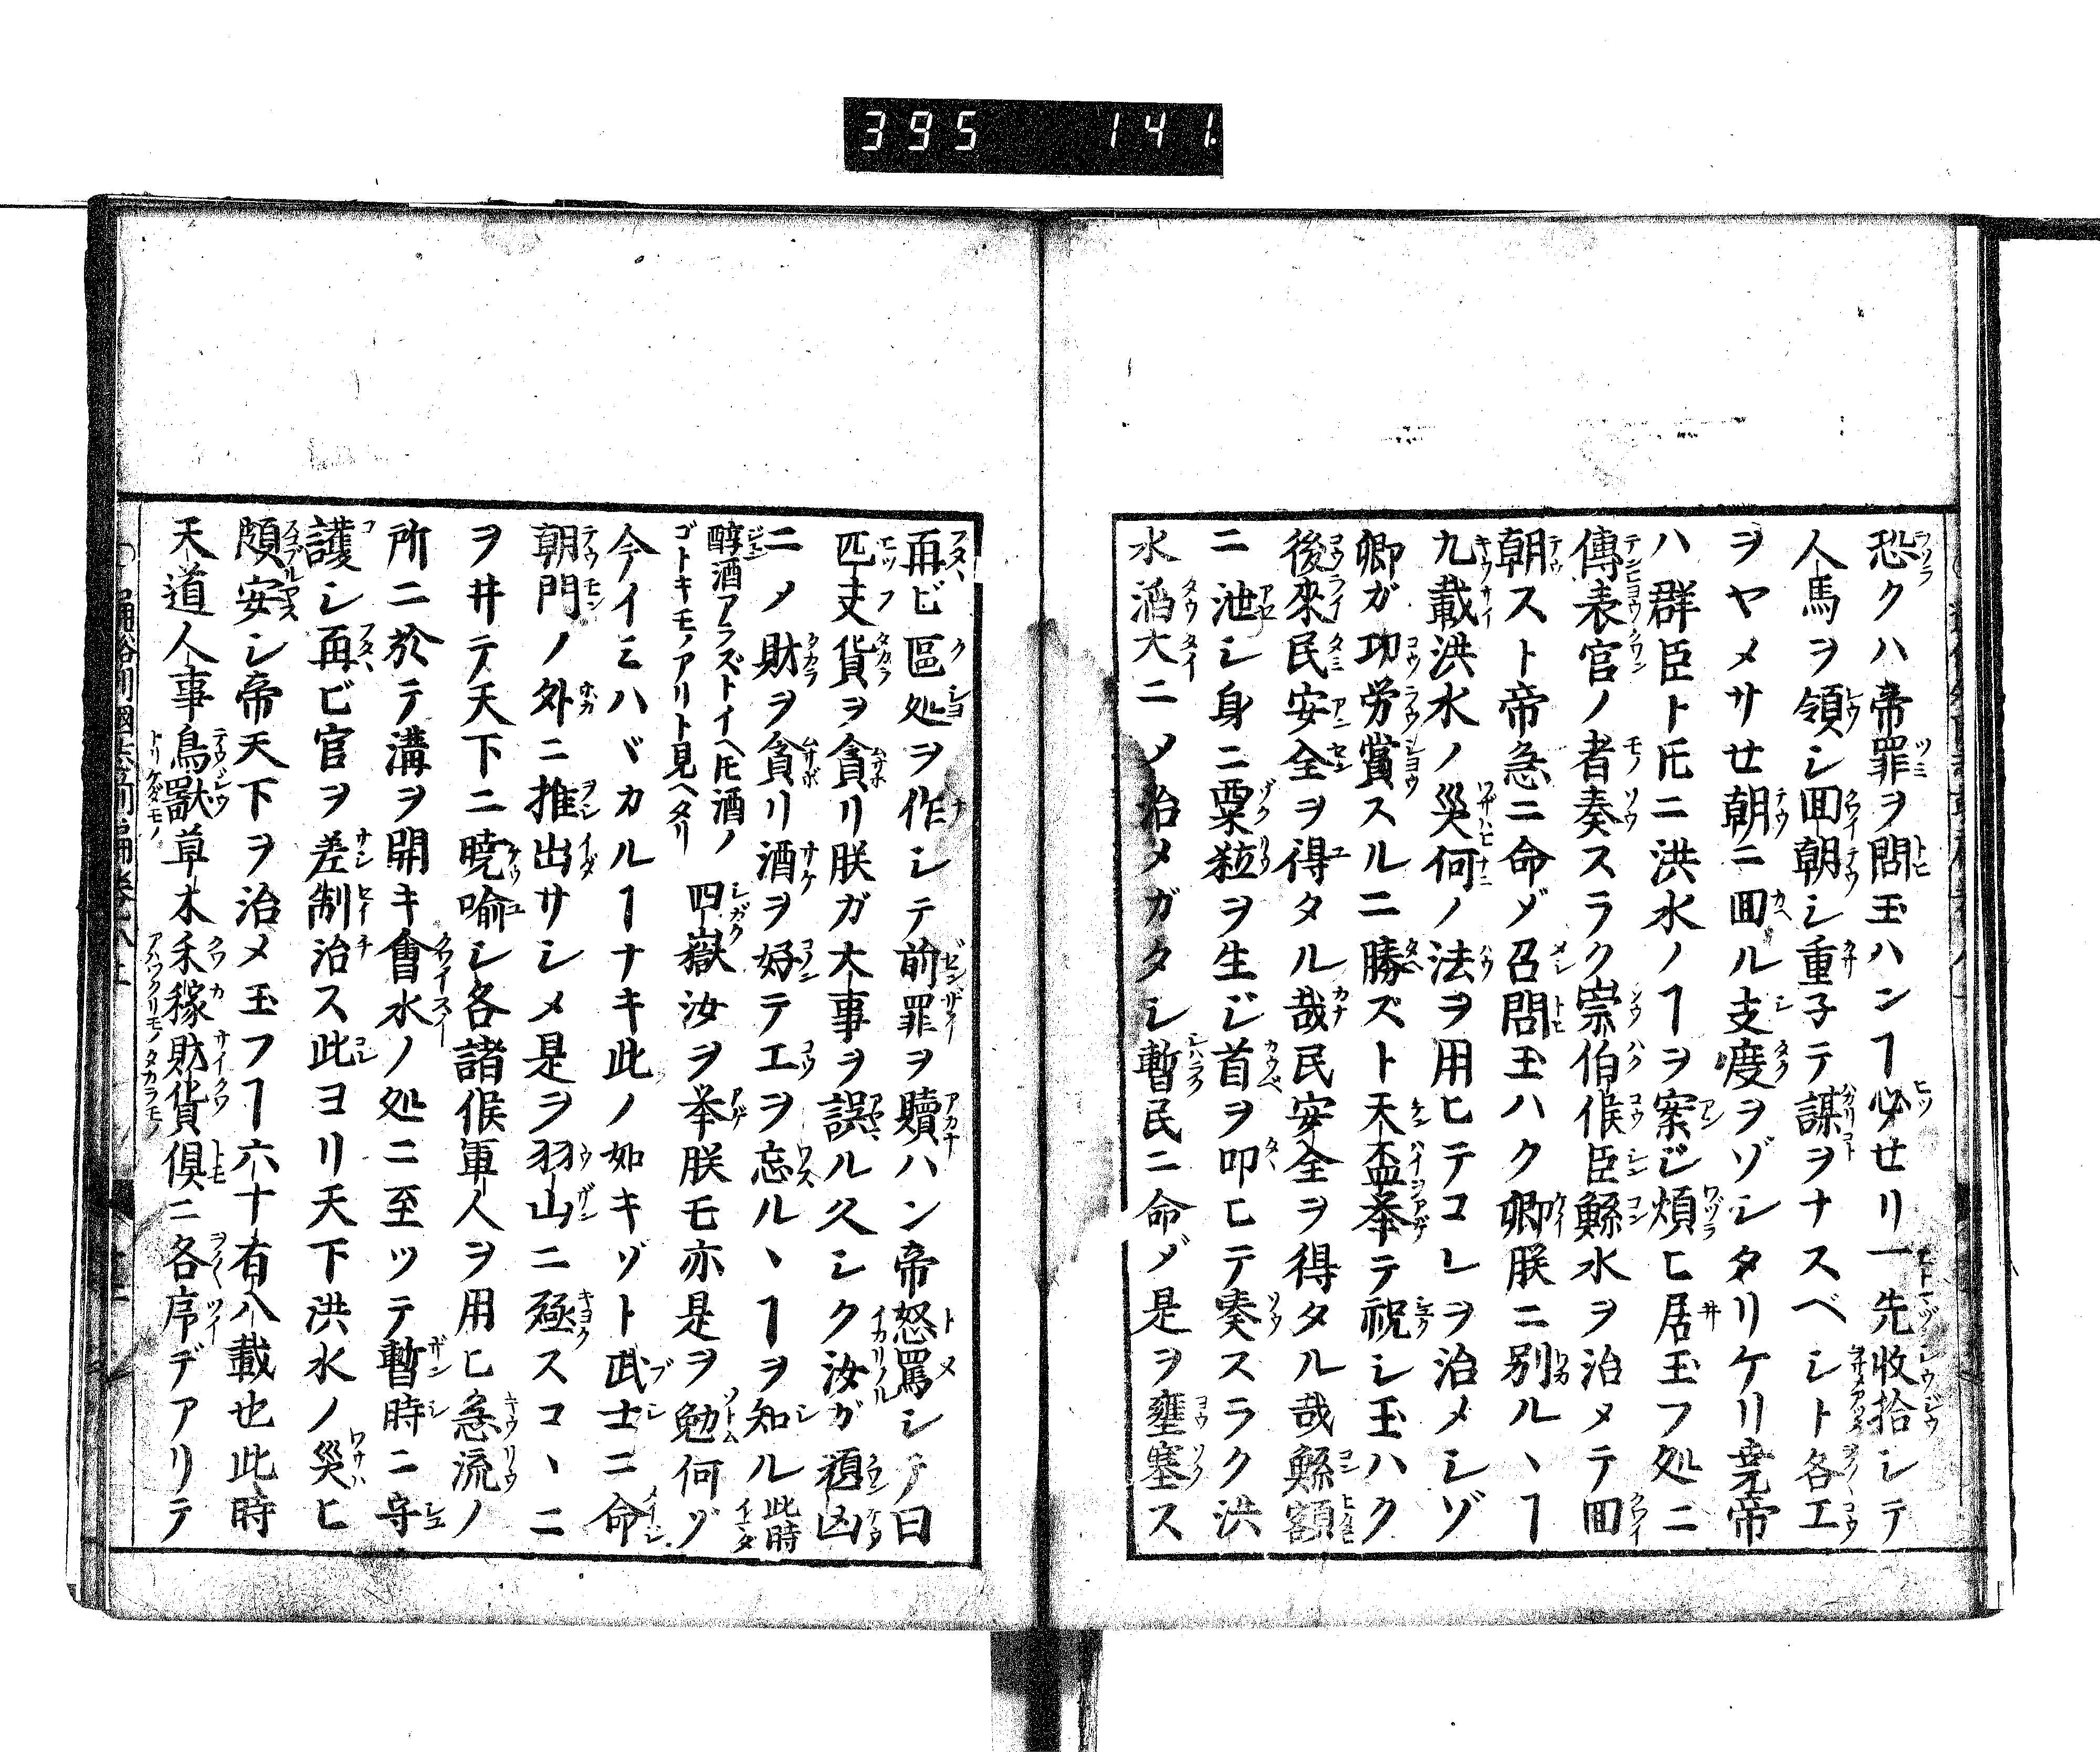 395 141
恐クハ帝罪ヲ問玉ハンヿ必せリ一先收拾シテ
人馬ヲ領シ囬朝シ重子テ謀ヲナスベシト各工
ヲヤメサせ朝ニ囬ル支度ヲゾシタリケリ堯帝
ハ群臣ト𪜈ニ洪水ノヿヲ案ジ煩ヒ居玉フ処ニ
傳表官ノ者奏スラク崇伯侯臣鯀水ヲ治メテ囬
朝スト帝急ニ命ゾ召問玉ハク卿朕ニ别ルヽヿ
九載洪水ノ災何ノ法ヲ用ヒテコレヲ治メシゾ
卿ガ功労賞スルニ勝ズト天盃举テ祝シ玉ハク
後來民安全ヲ得タル哉民安全ヲ得タル哉鯀額
ニ池シ身ニ粟粒ヲ生ジ首ヲ叩ヒテ奏スラク洪
水滔大ニメ治メガタシ暫民ニ命ゾ是ヲ壅塞ス
再ビ區処ヲ作シテ前罪ヲ贖ハン帝怒罵シテ曰
匹夫貨ヲ貪リ朕ガ大事ヲ誤ル久シク汝ガ頑凶
ニメ財ヲ貪リ酒ヲ好テ工ヲ忘ルヽヿヲ知ル此時イマダ
醇酒アラズトイヘ𪜈酒ノゴトキモノアリト見ヘタリ四嶽汝ヲ举朕モ亦是ヲ勉何ゾ
今イミハヾカルヿナキ此ノ如キゾト武士ニ命
朝門ノ外ニ推出サシメ是ヲ羽山ニ殛スコヽニ
ヲ井テ天下ニ暁喻シ各諸侯軍人ヲ用ヒ急流ノ
所ニ於テ溝ヲ開キ會水ノ処ニ至ッテ暫時ニ守
護シ再ビ官ヲ差制治ス此ヨリ天下洪水ノ災ヒ
頗安シ帝天下ヲ治メ玉フヿ六十有八載也此時
天道人事鳥獸草木禾稼財貨俱ニ各序デアリテ